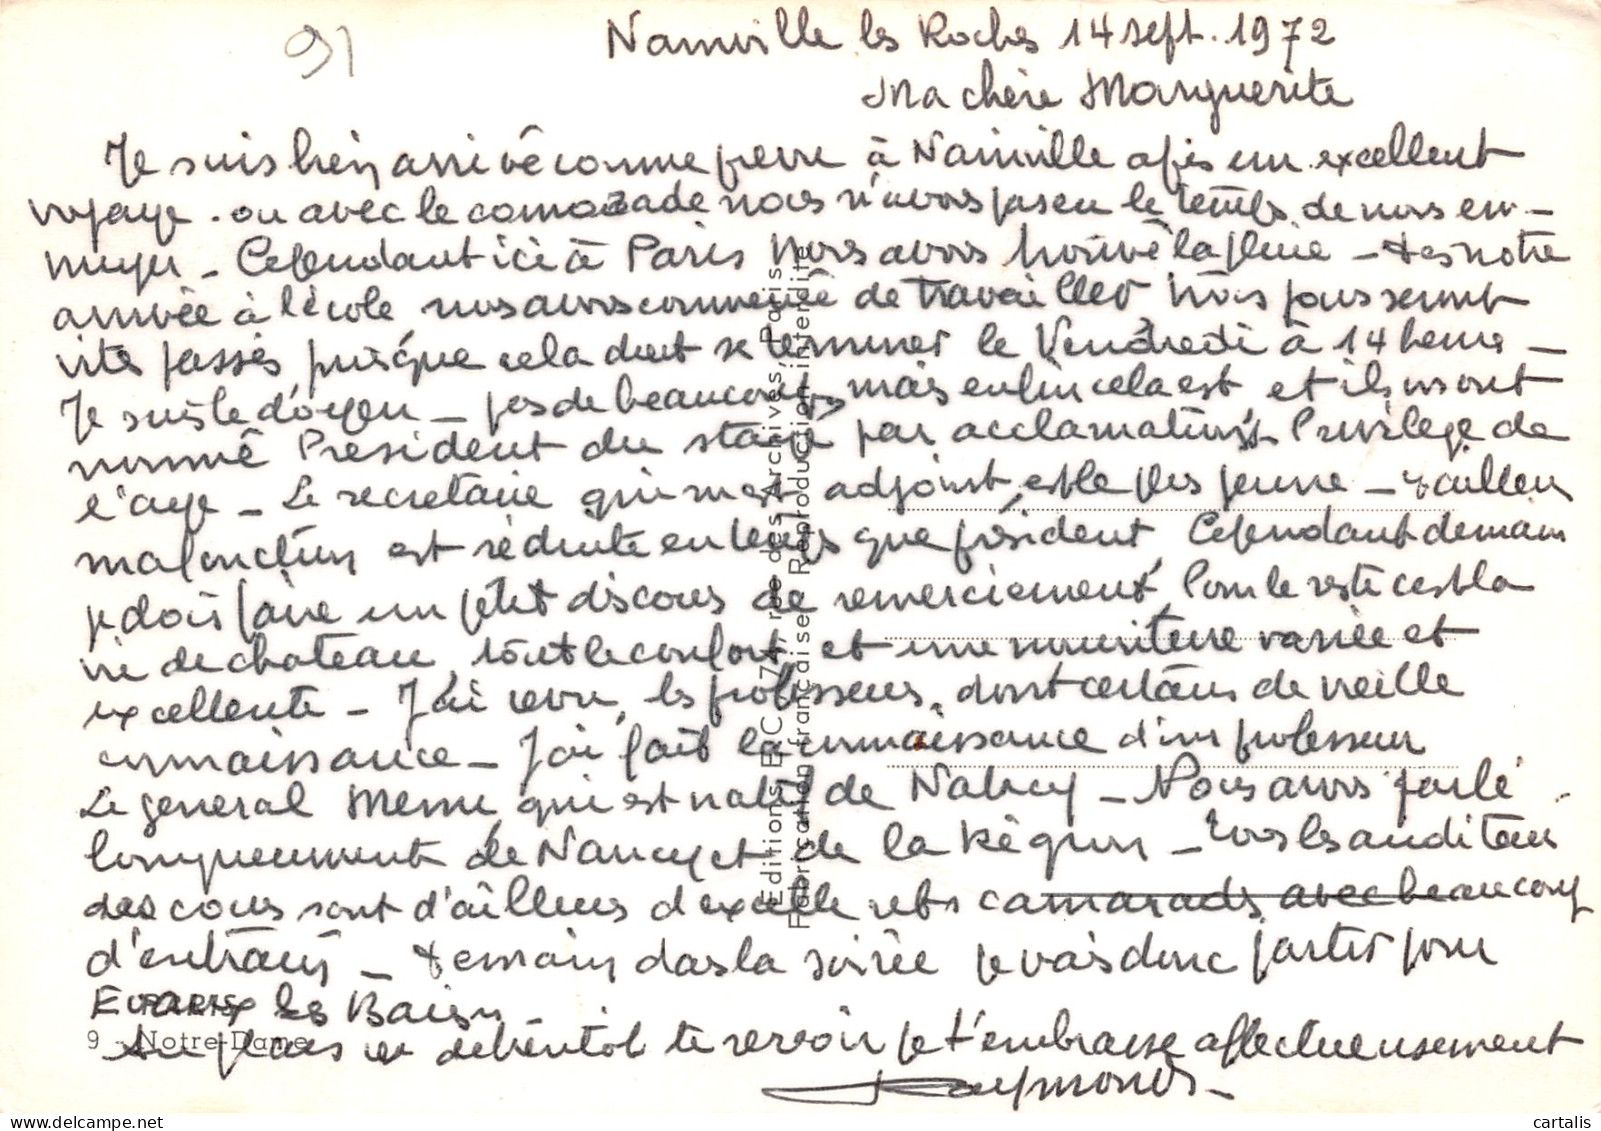 91
Nainville les Roches 14 sept. 1972
Ma chère Marguerite
Je suis bien arrivé comme prevu à Nainville après un excellent
voyage. ou avec le camarade nous n'avons pas eu le temps de nous en-
nuyer - Cependant ici à Paris nous avons trouvé la pluie - des notre
arrivée à l'école nous avons commencé de travailler trois jours seront
vite passés puisque cela doit se terminer le Vendredi à 14 heures -
Je suis le doyen - pas de beaucoup, mais enfin cela est et ils m'ont
nommé President du stage par acclamations Privilege de
l'age - Le secretaire qui m'est adjoint, est le plus jeune - d'ailleurs
ma fonction est réduite en temps que président, Cependant demain
je dois faire un petit discours de remerciement, Pour le reste c'est la
vie de chateau, tout le confort, et une nourriture variée et
excellente - J'ai revu, les professeurs, dont certains de vieille
connaissance - J'ai fait la connaissance d'un professeur
Le general qui est natif de Nancy - Nous avons parlé
longuement de Nancy et de la Région - Tous les auditeurs
des cours sont d'ailleurs d'excellents camarades avec beaucoup
d'entrain - Demain dans la soirée je vais donc partir pour
Evaux les Bains -
Au plaisir de bientôt te revoir je t'embrasse affectueusement
Raymond -
PARIS
9 - Notre-Dame
Editions E C 77, rue des Archives, Paris
Fabrication française Reproduction interdite
cartalis